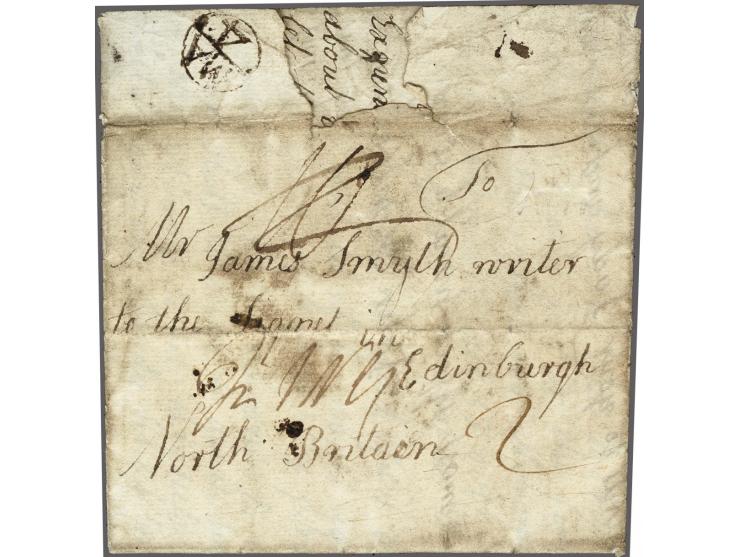 To
Mr James Smyth writer
to the Signet in
Edinburgh
North Britain
about